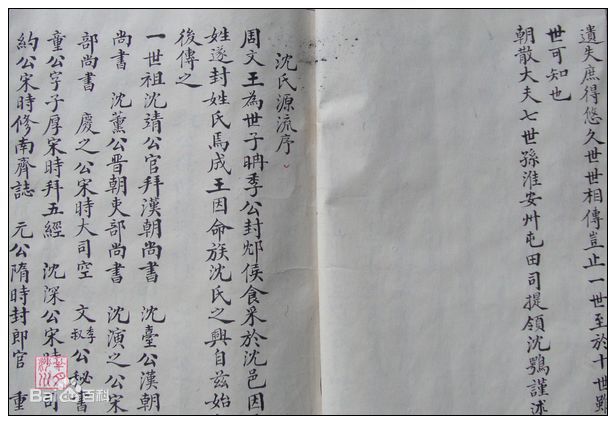 遺失庶得悠久世世相傳豈止一世至於十世雖
世可知也
朝散大夫七世孫淮安州屯田司提領沈鶚謹述
沈氏源流序
周文王為世子聃季公封邥侯食采於沈邑因
姓遂封姓氏焉成王因命族沈氏之興自茲始
後傳之
一世祖沈靖公官拜漢朝尚書 沈臺公漢朝
尚書 沈薫公晉朝吏部尚書 沈演之公宋
部尚書 慶之公宋時大司空 文季叔公秘書
童公字子厚宋時拜五經 沈深公宋時 司
約公宋時修南齊誌 元公隋時封郎官 重
Bai 百科